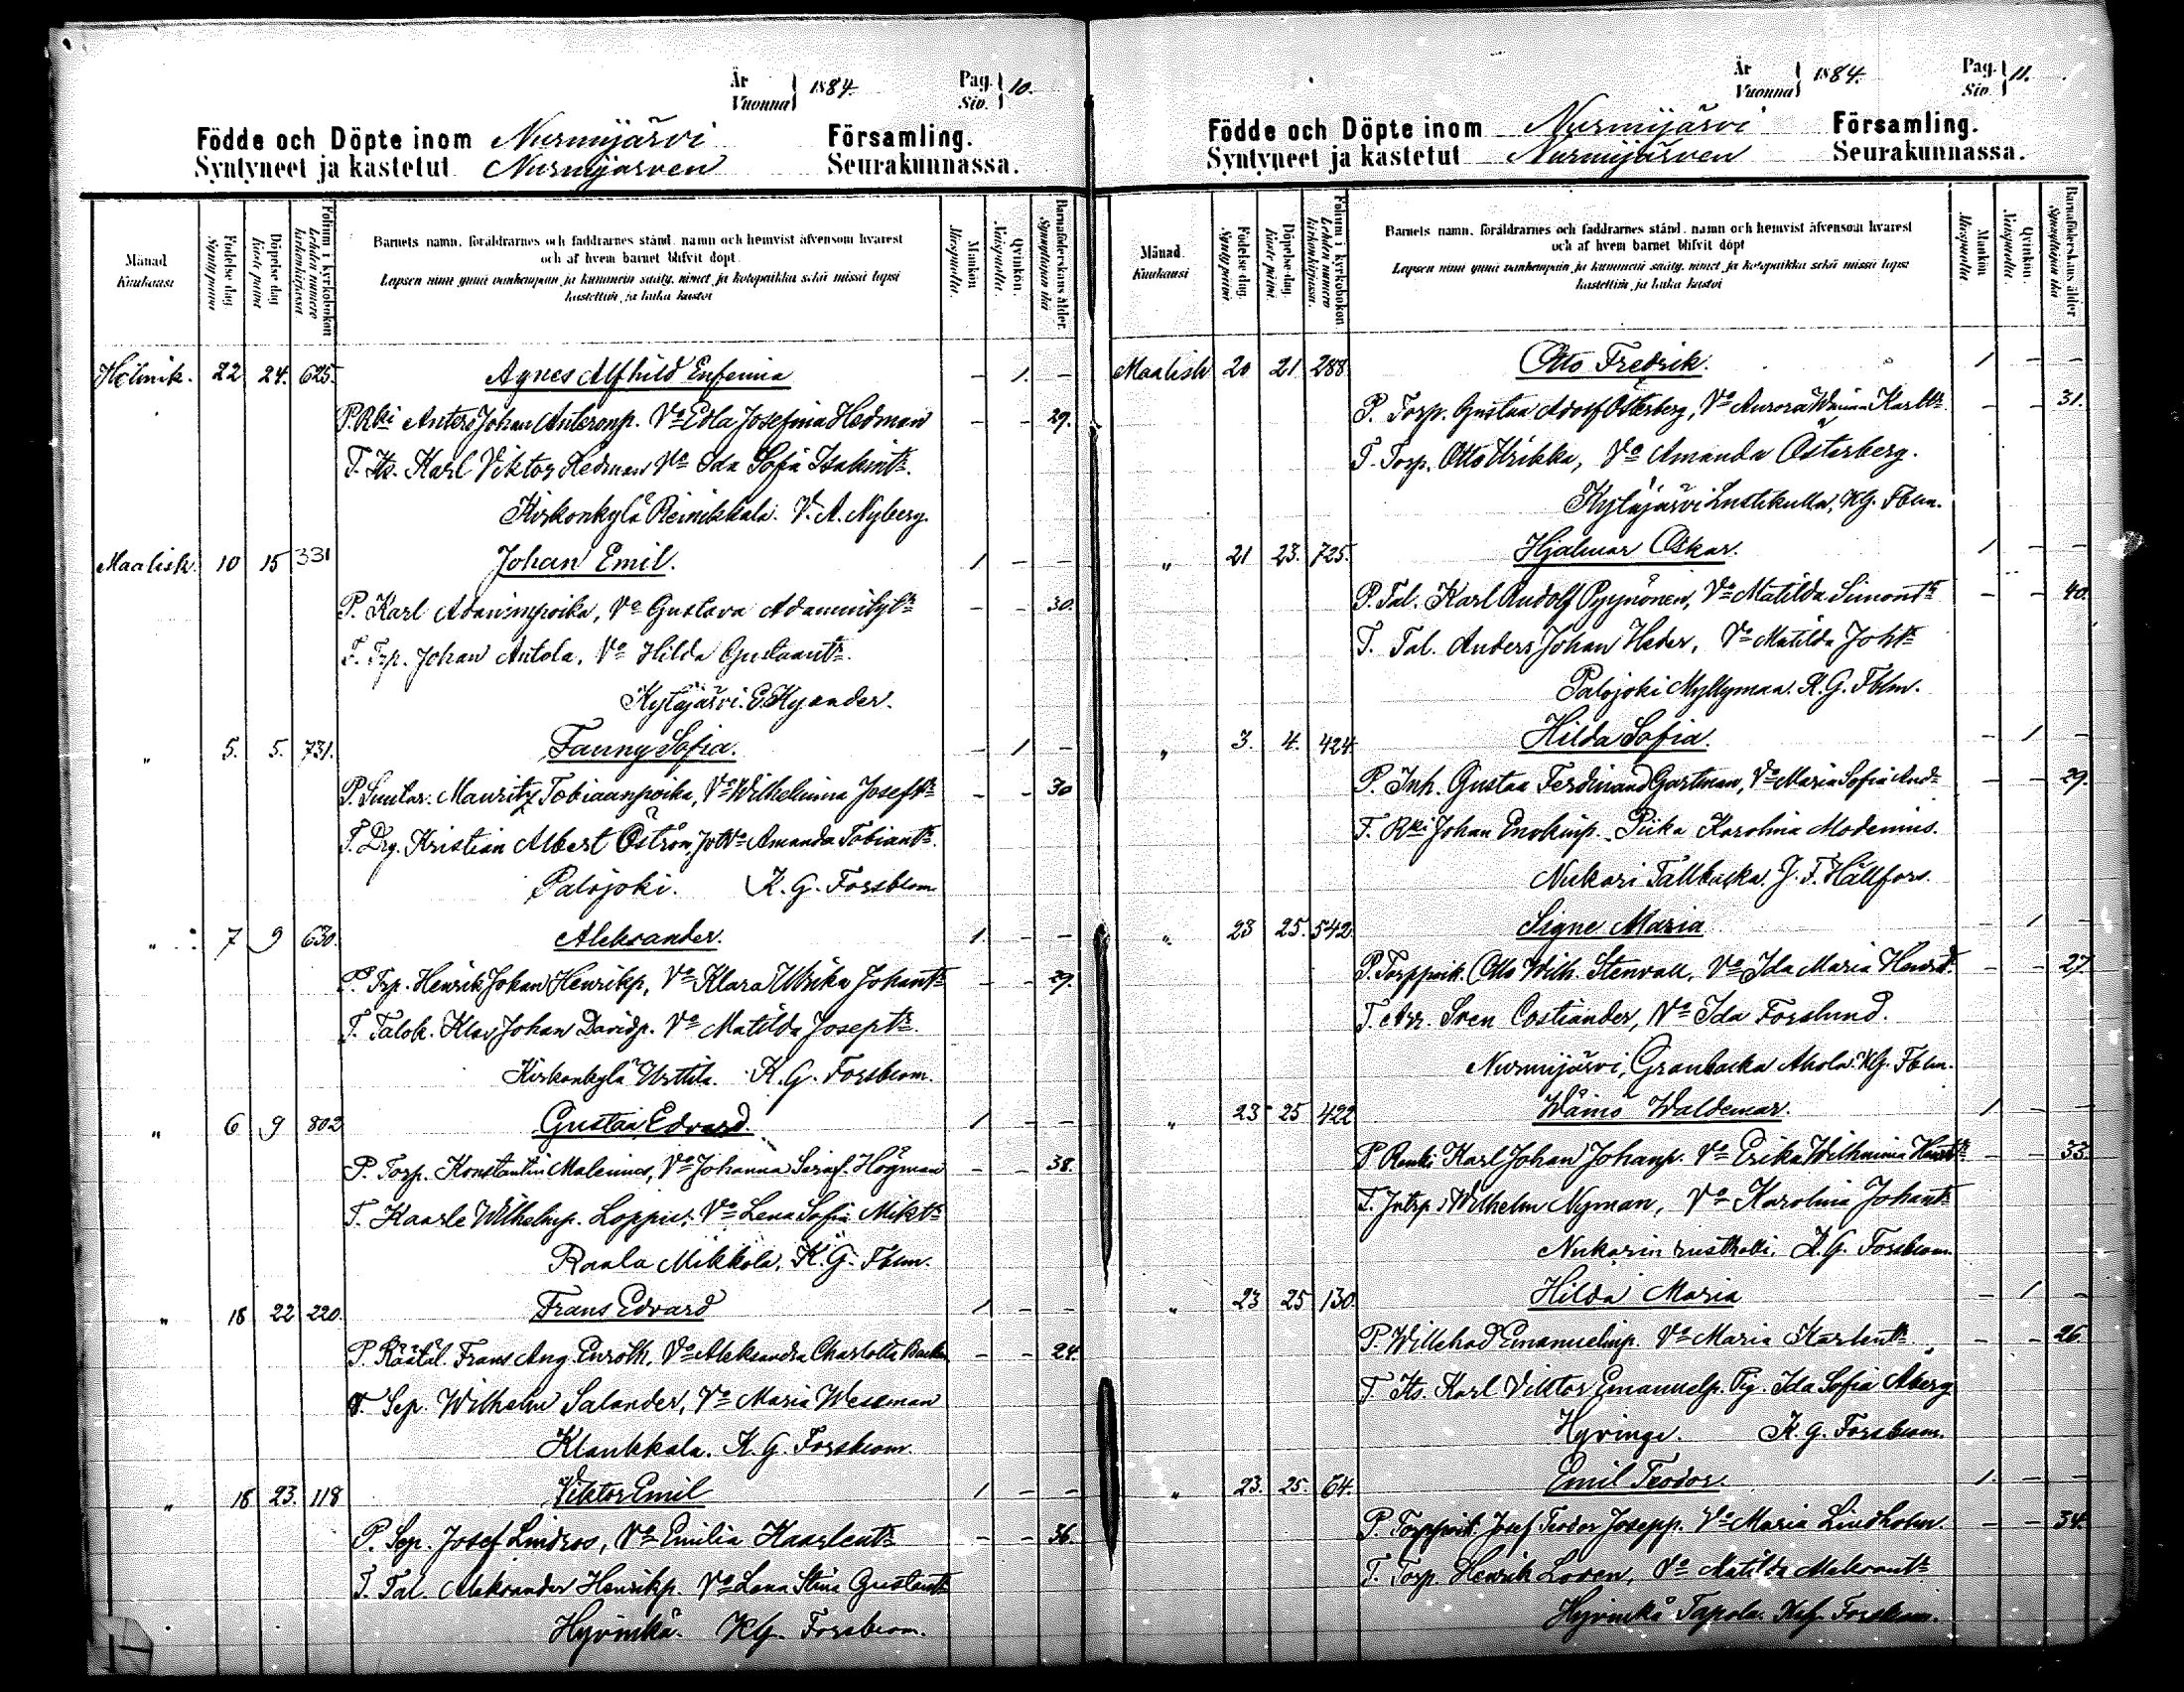 År Vuonna 1884. Pag. Siv. 10.
Födde och Döpte inom Nurmijärvi Församling.
Syntyneet ja kastetut Nurmijärven Seurakunnassa.
Månad Kuukausi
Födelse dag Synty päivä
Döpelse dag Kaste päivä
Folium i kyrkoboken Lehden numero kirkonkirjassa
Barnets namn, föräldrarnes och faddrarnes stånd, namn och hemvist äfvensom hvarest
och af hvem barnet blifvit döpt.
Lapsen nimi ynnä vanhempain ja kummein sääty, nimet ja kotopaikka sekä missä lapsi
kastettiin ja kuka kastoi
Mankön Miespuolta.
Qvinkön. Naispuolta.
Barnaföderskans ålder. Synnyttäjän ikä
Helmik. 22 24. 625. Agnes Alfhild Eufemia – 1. –
P. Rki Anters Johan Anteronp. Vo Edla Josefina Hedman – – 29.
T. Its. Karl Viktor Hedman Vo Ida Sofia Isakint.
Kirkonkylä Reinikkala. V. A. Nyberg.
Maalisk. 10 15 331 Johan Emil. 1 – –
P. Karl Adaminpoika, Vo Gustava Adamintyt. – – 30.
T. Trp. Johan Antola, Vo Hilda Gustaant.
Kytäjärvi. E. Hyander.
" 5. 5. 731. Fanny Sofia. – 1 –
P. Suutar. Mauritz Tobiaanpoika, Vo Wilhelmina Joseft. – – 30
T. Drg. Kristian Albert Öström, Vo Amanda Tobiant.
Palojoki. K. G. Forsblom
" 7 9 630. Aleksander. 1. – –
P. Trp. Henrik Johan Henrikp, Vo Klara Ulrika Johant. – – 29.
T. Talok. Klas Johan Davidp. Vo Matilda Josept.
Kirkonkylä Urttila. K. G. Forsblom.
" 6 9 802 Gustaa Edvard. 1 – –
P. Torp. Konstantin Malenius, Vo Johanna Seraf. Högman – – 38.
T. Kaarle Wilhelmp. Loppis; Vo Lena Sofia Mikt.
Raala Mikkola, K. G. Fblm.
" 18 22 220. Frans Edvard 1 – –
P. Räätäl. Frans Aug. Enroth, Vo Aleksandra Charlotta – – 24.
T. Sep. Wilhelm Salander, Vo Maria Wessman
Klaukkala. K. G. Forsblom.
" 18 23. 118 Viktor Emil 1 – –
P. Sep. Josef Lindros, Vo Emilia Kaarlent. – – 36.
T. Tal. Aleksander Henrikp. Vo Lena Stina Gustant.
Hyvinkä. KG. Forsblom.
År Vuonna 1884. Pag. Siv. 11.
Födde och Döpte inom Nurmijärvi Församling.
Syntyneet ja kastetut Nurmijärven Seurakunnassa.
Månad. Kuukausi
Födelse dag. Synty päivä.
Döpelse dag. Kaste päivä.
Folium i kyrkoboken Lehden numero kirkonkirjassa.
Barnets namn, föräldrarnes och faddrarnes stånd, namn och hemvist äfvensom hvarest
och af hvem barnet blifvit döpt
Lapsen nimi ynnä vanhempain ja kummein sääty, nimet ja kotopaikka sekä missä lapsi
kastettiin ja kuka kastoi
Mankön Miespuolta
Qvinkön. Naispuolta.
Barnaföderskans ålder Synnyttäjän ikä
Maalisk 20 21 288 Otto Fredrik. 1 – –
P. Torp. Gustaa Adolf Österberg, Vo Aurora – – 31.
T. Torp. Otto Urikka, Vo Amanda Österberg.
Kytäjärvi Lustikulla, KG. Fblm.
" 21 23. 725. Hjalmar Oskar. 1 – –
P. Tal. Karl Rudolf Pyynönen, Vo Matilda Simont. – – 40.
T. Tal. Anders Johan Heder, Vo Matilda Joht.
Palojoki Myllymaa. K. G. Fblm.
" 3. 4. 424. Hilda Sofia. – 1 –
P. Inh. Gustaa Ferdinand Gartman, Vo Maria Sofia And. – – 29.
T. Rki Johan Enokinp. Piika Karolina Modenius.
Nukari Tallbacka. J. F. Hällfors.
" 23 25. 542. Signe Maria – 1 –
P. Torppuik. Otto Wilh. Stenvall, Vo Ida Maria – – 27
T. Arr. Sven Costiander, Vo Ida Forslund.
Nurmijärvi, Granbacka Ahola. KG. Fblm.
" 23 25 422 Wäinö Waldemar. 1 – –
P. Renki Karl Johan Johanp. Vo Erika Wilhmina – – 33.
T. Wilhelm Nyman, Vo Karolina Johant.
Nukarin rustholli. K. G. Forsblom.
" 23 25 130 Hilda Maria – 1 –
P. Willehad Emanuelinp. Vo Maria Karlint. – – 26.
T. Its. Karl Viktor Emanuelp. Pig. Ida Sofia Åberg
Hyvinge. K. G. Forsblom.
" 23. 25. 64. Emil Teodor. 1. – –
P. Josef Teodor Josepp. Vo Maria Lindholm. – – 34.
T. Torp. Henrik Loren, Vo Matilda
Hyvinkä Tapola. KG. Forsblom.